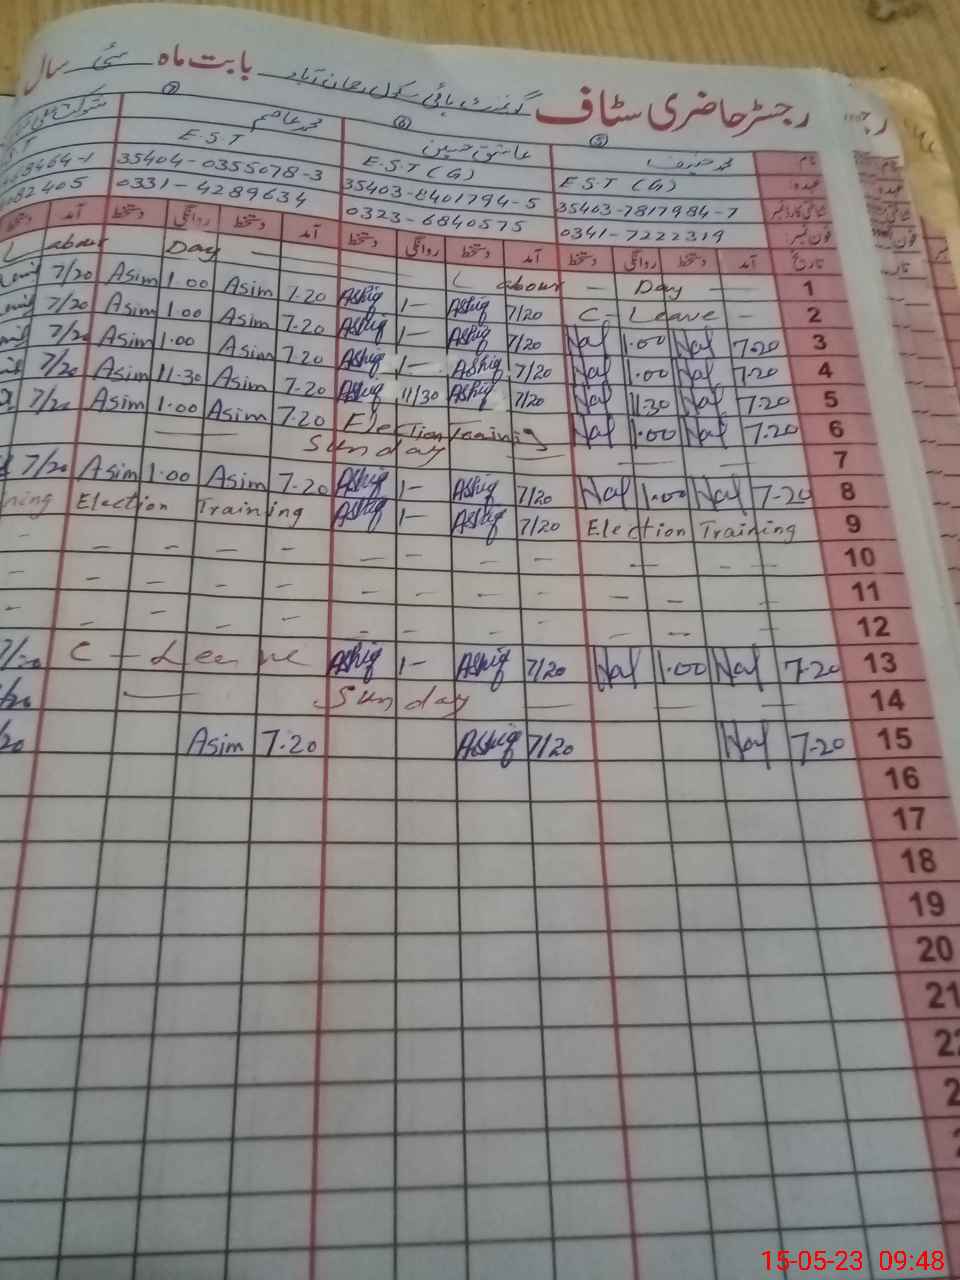 رجسٹر حاضری سٹاف گورنمنٹ ہائی سکول بابت ماہ مئی سال
نام محمد ⑤ عاشق حسین ⑥ محمد عاصم ⑦
عہدہ E.S.T (G) E.S.T (G) E.S.T
35403-7817984-7 35403-8401794-5 35404-0355078-3 8464-1
فون نمبر 0341-7222319 0323-6840575 0331-4289634 82405
تاریخ آمد دستخط روانگی دستخط آمد دستخط روانگی دستخط آمد دستخط روانگی دستخط آمد دستخط
Labour Day — Labour — Day — 1
7/20 Asim 1.00 Asim 7.20 Ashiq 1— Ashiq 7/20 C-Leave — 2
7/20 Asim 1.00 Asim 7.20 Ashiq 1— Ashiq 7/20 1.00 7.20 3
7/20 Asim 1.00 Asim 7.20 Ashiq 1— Ashiq 7/20 1.00 7.20 4
7/20 Asim 11.30 Asim 7.20 Ashiq 11/30 Ashiq 7/20 11.30 7.20 5
7/20 Asim 1.00 Asim 7.20 Election training 1.00 7.20 6
— — Sunday — — — 7
7/20 Asim 1.00 Asim 7.20 Ashiq 1— Ashiq 7/20 1.00 7.20 8
ning Election Training Ashiq 1— Ashiq 7/20 Election Training 9
— — — — — — — — — — — 10
— — — — — — — — — — — 11
— — — — — — — — — — — 12
7/20 C-Leave Ashiq 1— Ashiq 7/20 1.00 7.20 13
/20 — Sunday — — — 14
/20 Asim 7.20 Ashiq 7/20 7.20 15
16
17
18
19
20
21
22
2
15-05-23 09:48